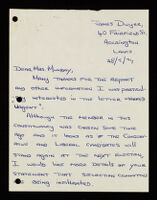 James Dwyer,
40 Fairfield St.
Accrington
Lancs
28/5/74
Dear Mrs. Munday,
Many thanks for the report
and other information I was posted.
I was interested in the letter marked
"Urgent".
Although the member in this
constituency was chosen some time
ago and it looks as if the Conservative
and Liberal candidates will
stand again at the next election,
I would like more details of your
statement that selection committees
are being infiltrated.